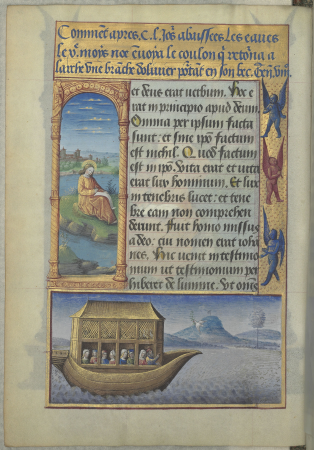 Comment apres .C.l. Jo's abaissees les eaues
le v.e moys noe envoia le coulon q retorna a
larche une branche dolivier portat en son bec. Gen. viii.
et deus erat verbum. Hoc e
rat in principio apud deum.
Omnia per ipsum facta
sunt: et sine ipso factum
est nichil. Quod factum
est in ipso vita erat et vita
erat lux hominum. Et lux
in tenebris lucet: et tene
bre eam non comprehen
derunt. Fuit homo missus
a deo: cui nomen erat ioha
nes. Hic venit in testimo
nium ut testimonium per
hiberet de lumine. Ut omes